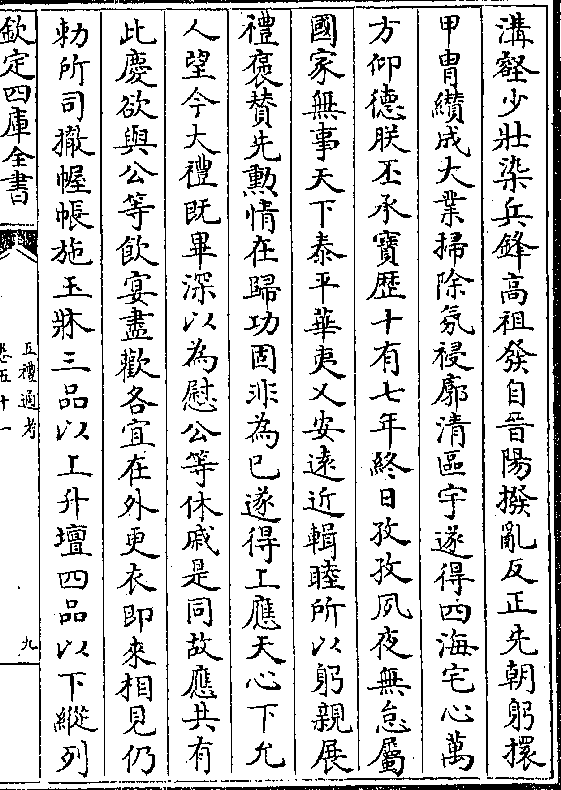 溝壑少壯染兵鋒高祖發自晉陽撥亂反正先朝躬擐
甲冑纘成大業掃除氛祲廓清區宇遂得四海宅心萬
方仰德朕丕承寶歷十有七年終日孜孜夙夜無怠屬
國家無事天下泰平華夷乂安遠近輯睦所以躬親展
禮褒贊先勲情在歸功固非為已遂得上應天心下允
人望今大禮既畢深以為慰公等休戚是同故應共有
此慶欲與公等飲宴盡歡各宜在外更衣即來相見仍
勅所司撤幄帳施玉牀三品以上升壇四品以下縱列
欽定四庫全書
五禮通考
卷五十一
九